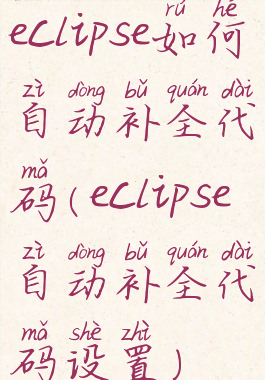 rú hé
eclipse如何
zì dòng bǔ quán dài
自动补全代
mǎ
码(eclipse
zì dòng bǔ quán dài
自动补全代
mǎ shè zhì
码设置)